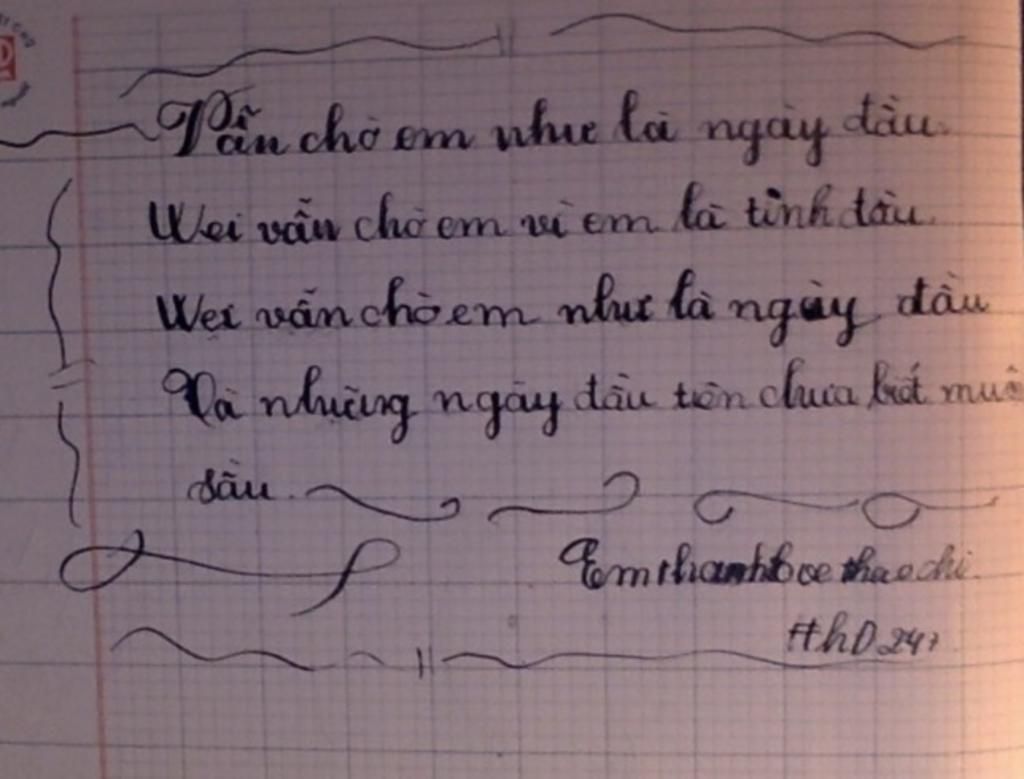 Vẫn chờ em như là ngày đầu.
Wei vẫn chờ em vì em là tình đầu.
Wei vẫn chờ em như là ngày đầu
Và những ngày đầu tiên chưa biết muộ
sầu.
#hD247